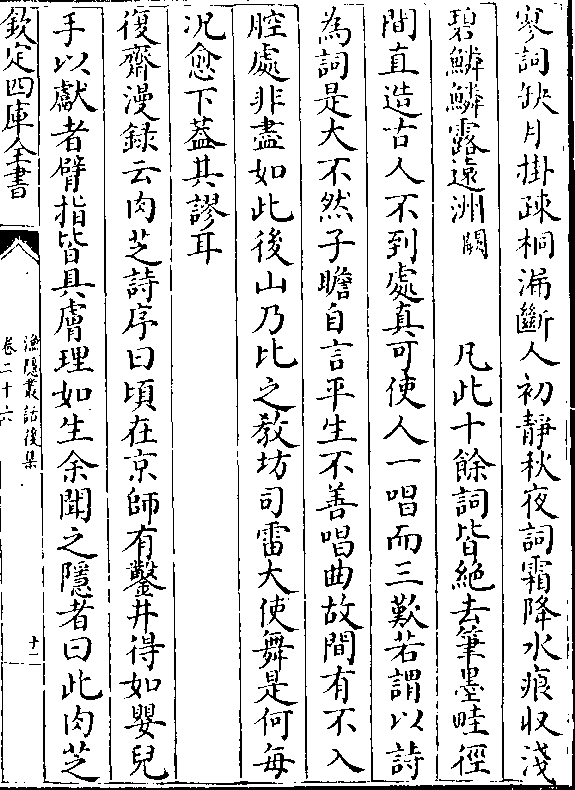 寒詞缺月掛疎桐漏斷人初靜秋夜詞霜降水痕收淺
碧鱗鱗露遠洲闕　凡此十餘詞皆絶去筆墨畦徑
間直造古人不到處真可使人一唱而三歎若謂以詩
為詞是大不然子瞻自言平生不善唱曲故間有不入
腔處非盡如此後山乃比之教坊司雷大使舞是何每
况愈下蓋其謬耳
復齋漫録云肉芝詩序曰頃在京師有鑿井得如嬰兒
手以獻者臂指皆具膚理如生余聞之隱者曰此肉芝
欽定四庫全書
漁隱叢話後集
卷二十六
十二